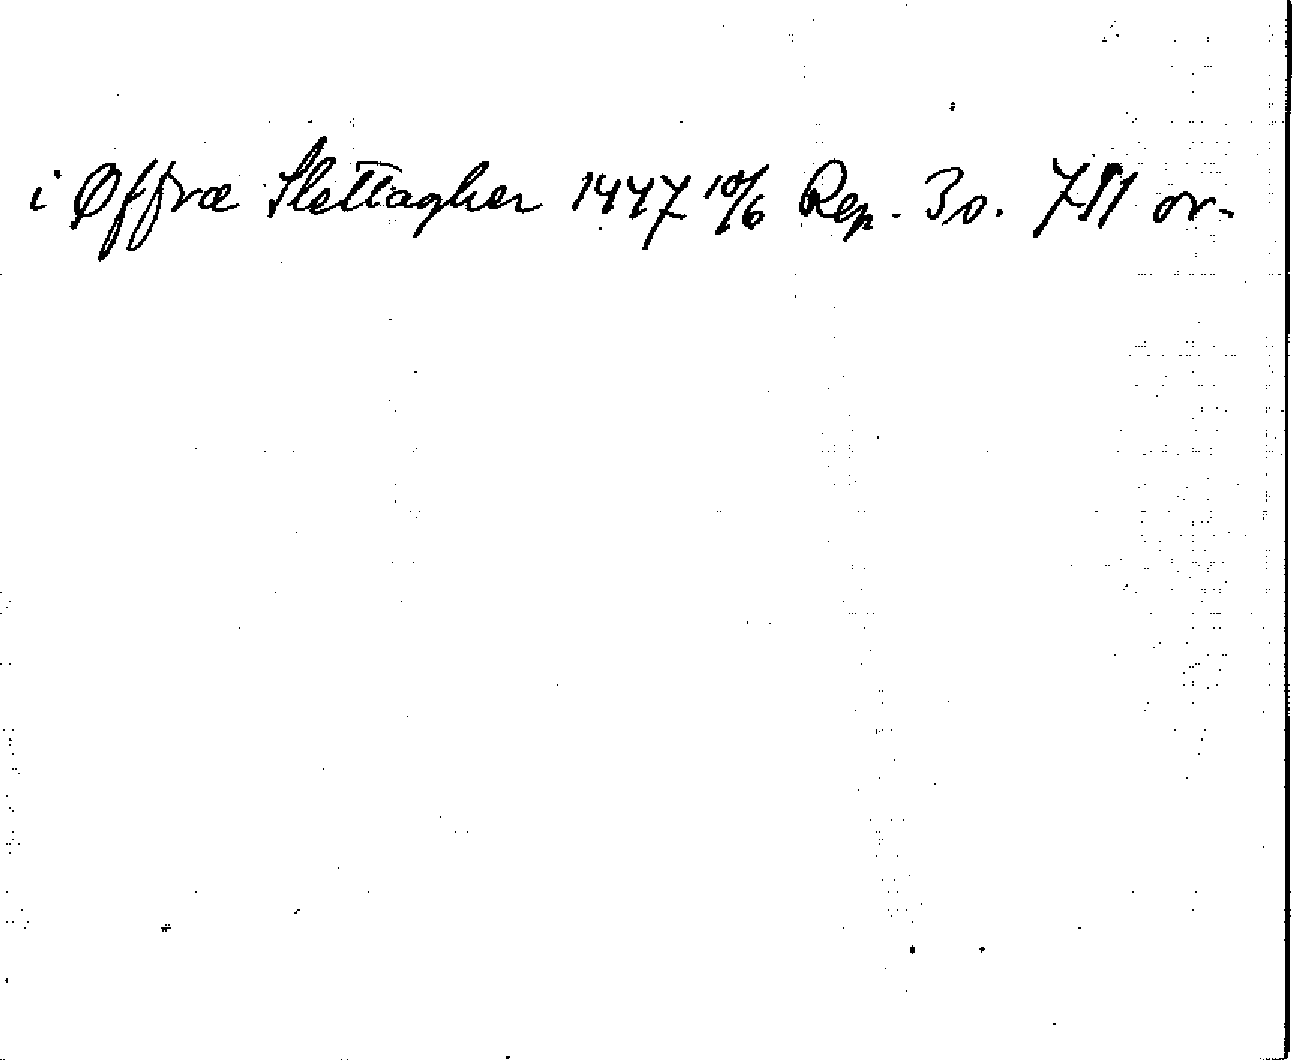 i Øffræ Slettagher 1447 10/6 Rep. 30. 751 or.